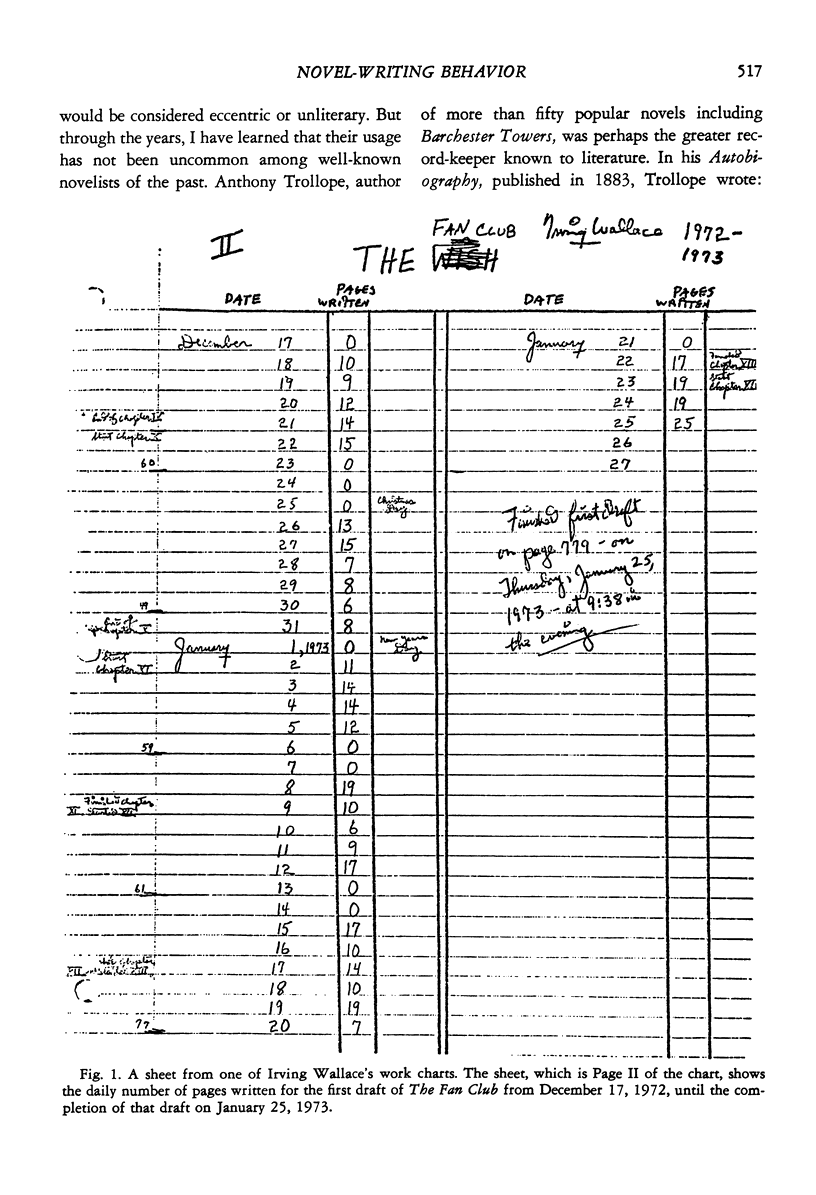 NOVEL-WRITING BEHAVIOR 517
would be considered eccentric or unliterary. But
through the years, I have learned that their usage
has not been uncommon among well-known
novelists of the past. Anthony Trollope, author
of more than fifty popular novels including
Barchester Towers, was perhaps the greater rec-
ord-keeper known to literature. In his Autobi-
ography, published in 1883, Trollope wrote:
II
THE WISH
FAN CLUB Irving Wallace 1972-
1973
DATE PAGES WRITTEN DATE PAGES WRITTEN
December 17 0
18 10
19 9
20 12
21 14
Start Chapter X
22 15
60 23 0
24 0
25 0 Christmas Day
26 13
27 15
28 7
29 8
49 30 6
31 8
January 1, 1973 0 New Years Day
Start Chapter XI
2 11
3 14
4 14
5 12
59 6 0
7 0
8 19
Finished Chapter XI. Started XII.
9 10
10 6
11 9
12 17
61 13 0
14 0
15 17
16 10
17 14
18 10
19 19
77 20 7
January 21 0
22 17 Finished Chapter XIII
23 19 Start Chapter XIV
24 19
25 25
26
27
Finished first draft
on page 779 - on
Thursday, January 25,
1973 - at 9:38 in
the evening
Fig. 1. A sheet from one of Irving Wallace's work charts. The sheet, which is Page II of the chart, shows
the daily number of pages written for the first draft of The Fan Club from December 17, 1972, until the com-
pletion of that draft on January 25, 1973.